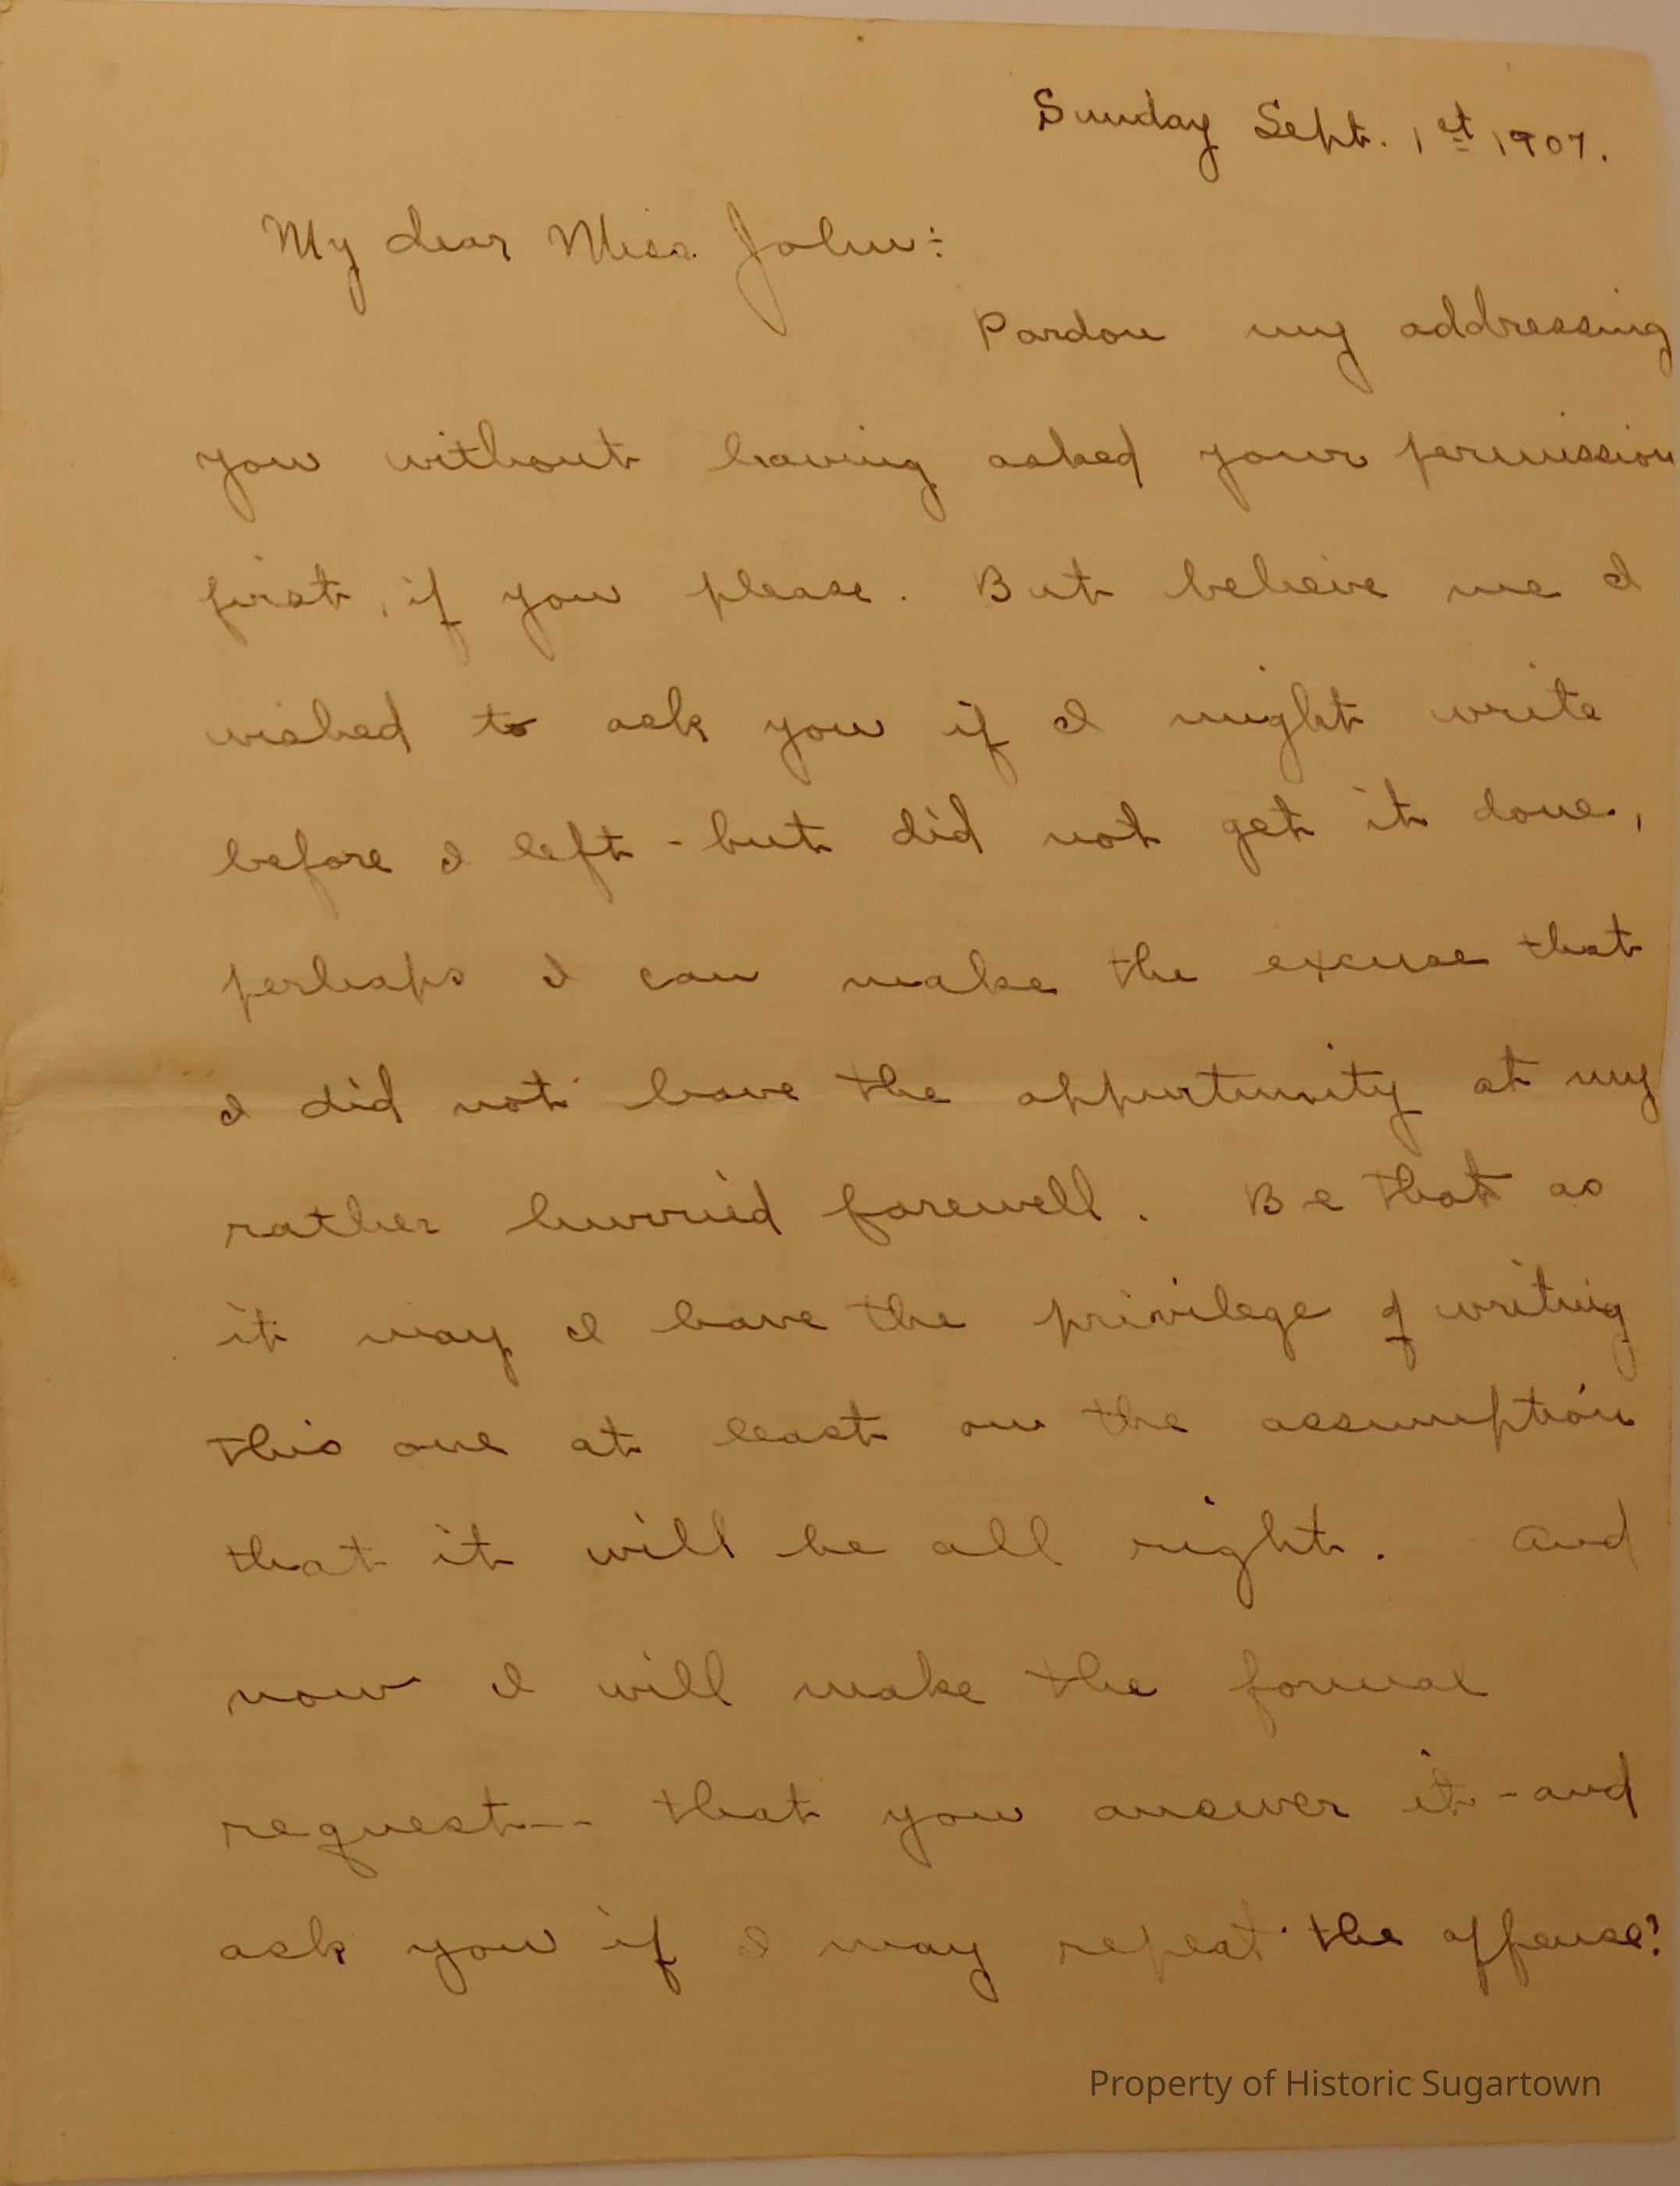 Sunday Sept. 1st 1907.
My dear Miss John:
Pardon my addressing
you without having asked your permission
first, if you please. But believe me I
wished to ask you if I might write
before I left - but did not get it done,
perhaps I can make the excuse that
I did not have the oppurtunity at my
rather hurried farewell. Be that as
it may I have the privilege of writing
this one at least on the assumption
that it will be all right. And
now I will make the formal
request-- that you answer it - and
ask you if I may repeat the offense?
Property of Historic Sugartown